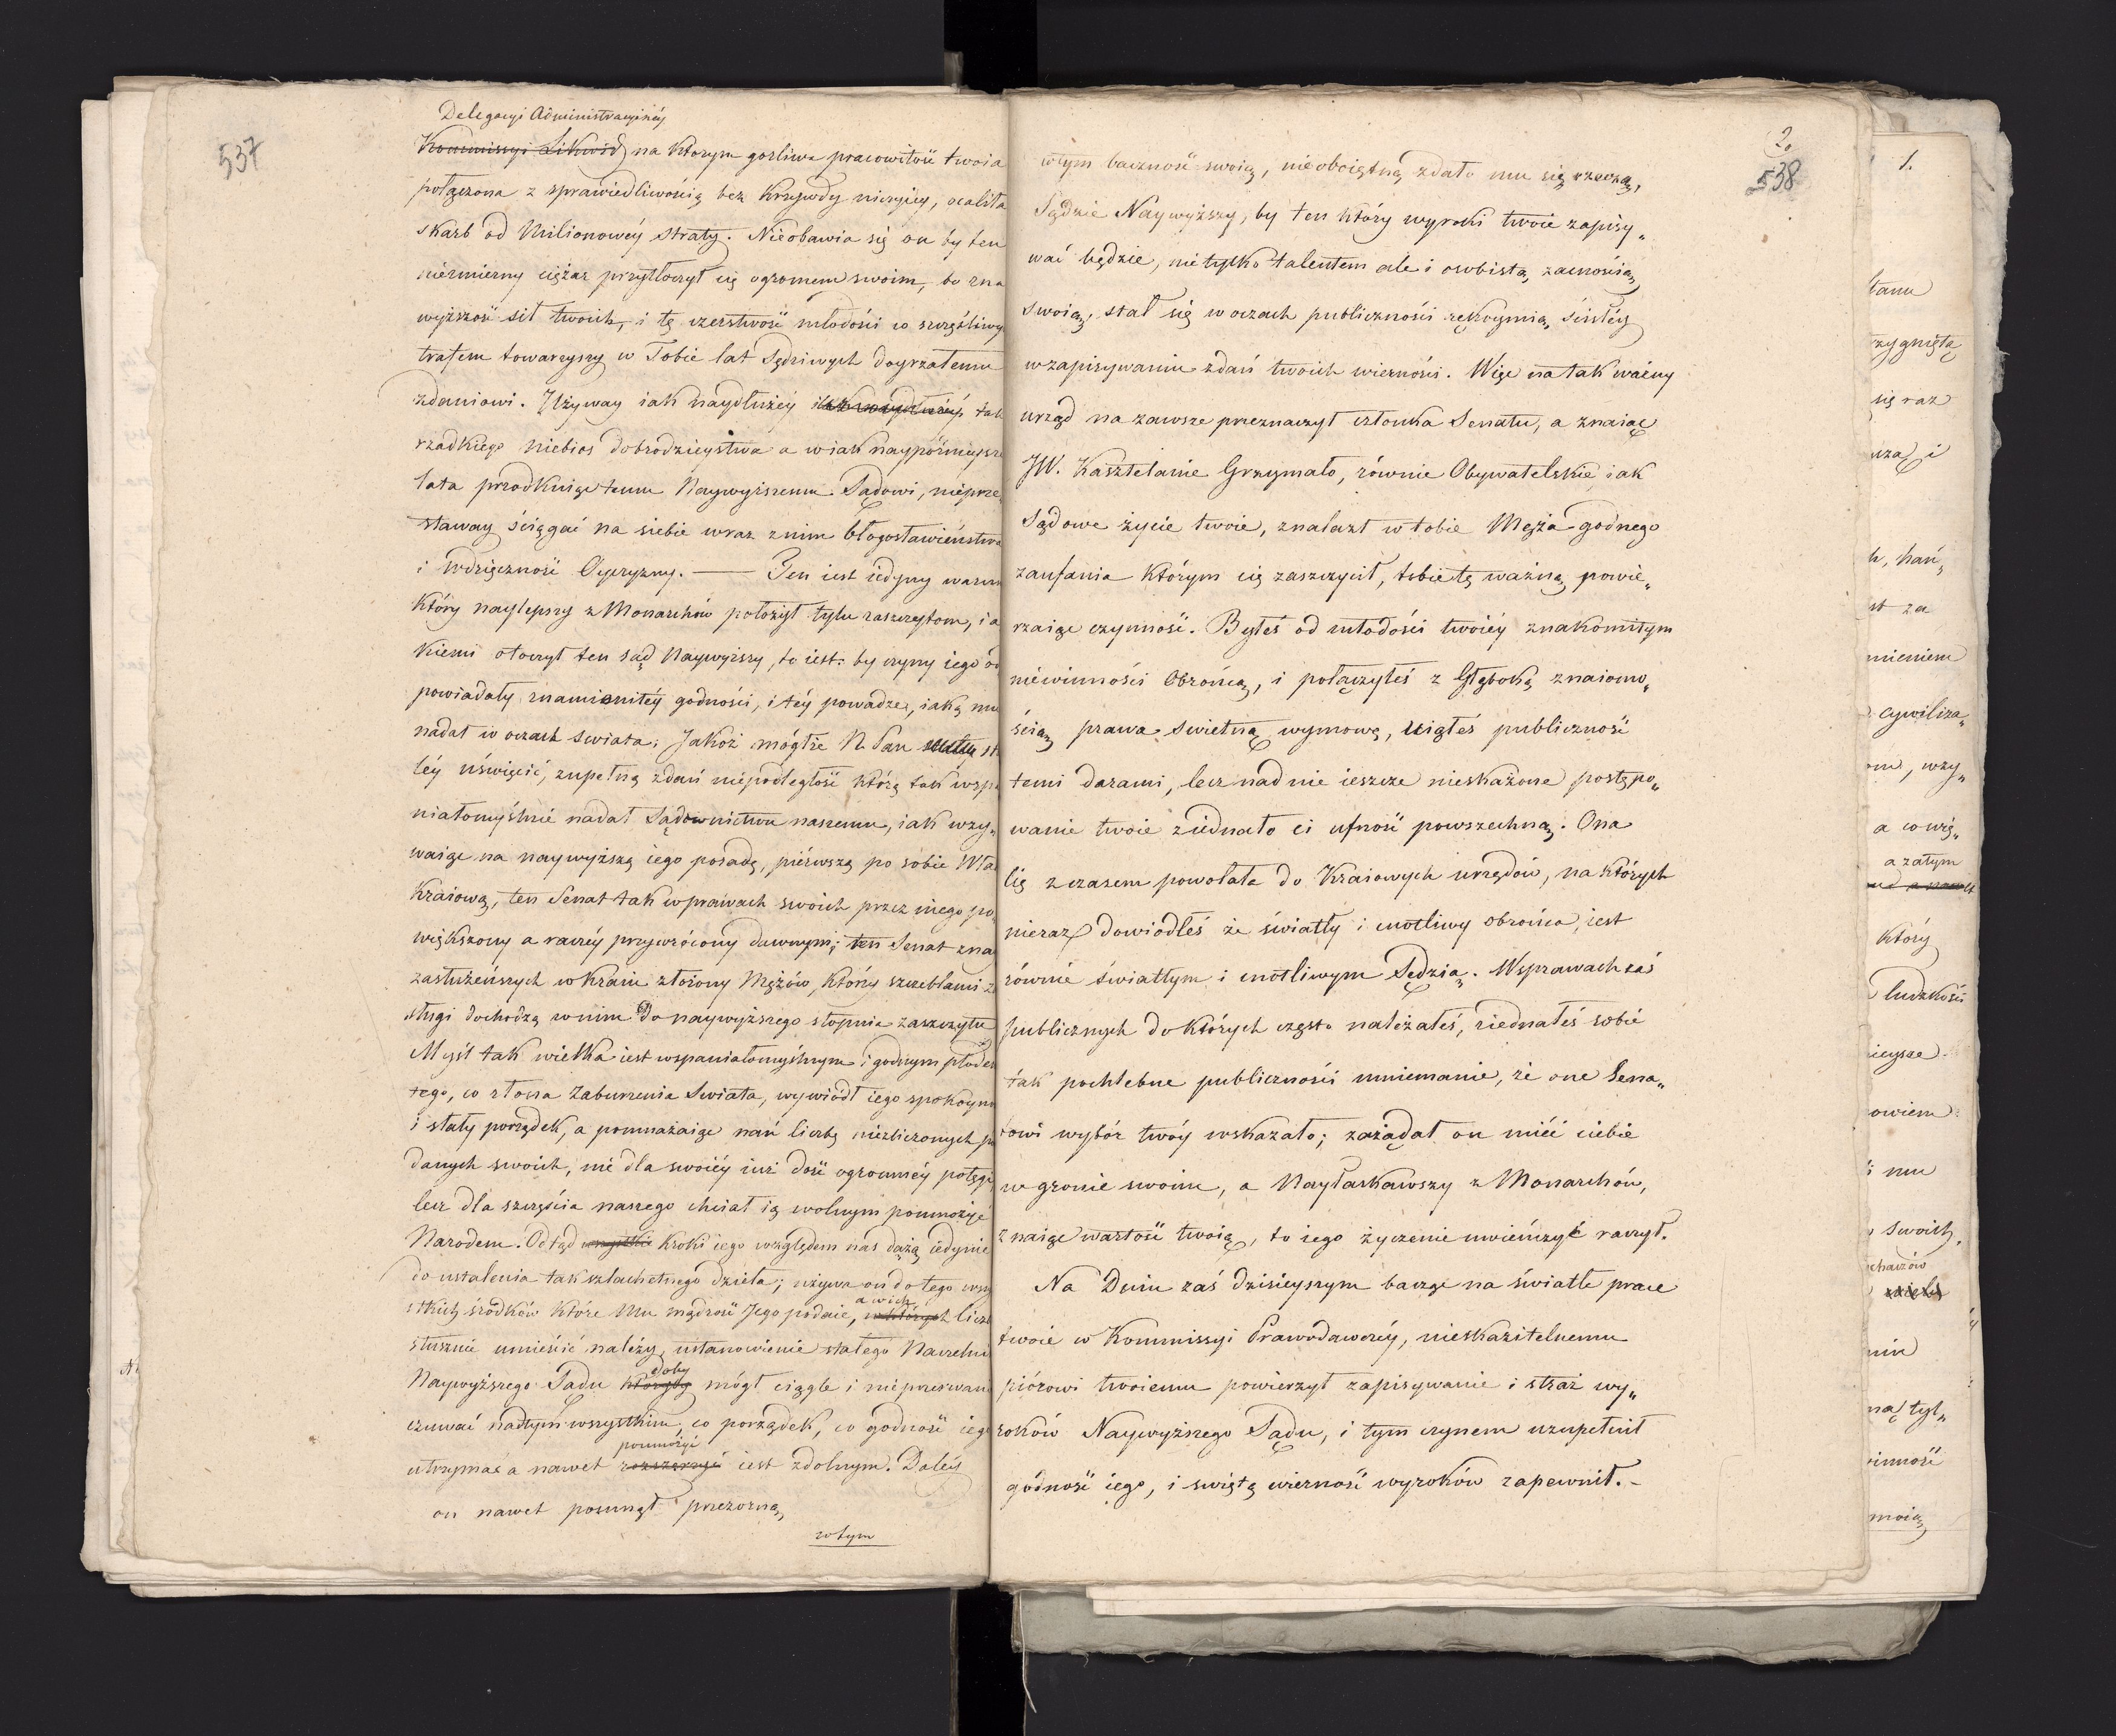 537
Delegacyi Administracyinéy
Kommissyi Likwid na którym gorliwa pracowitość twoia
połączona z sprawiedliwością bez krzywdy niczyiey, ocaliła
skarb od Milionowéy straty. Nieobawia się on by ten
niezmierny ciężar przytłoczył cię ogromem swoim, bo zna
wyższość sił twoich, i tę czerstwość młodości co szczęśliwy
trafem towarzyszy w Tobie lat Sędziwych doyrzałemu
zdaniowi. Używay iak naydłużéy tak
rzadkiego niebios dobrodzieystwa a w iak naypóźnieysze
lata przodkuiąc temu Naywyższemu Sądowi, nieprze„
staway ściągać na siebie wraz z nim błogosławieństwa
i wdzięczność Oyczyzny. — Ten iest iedyny warun
który naylepszy z Monarchów położył tylu zaszczytom, ia
kiemi otoczył ten sąd Naywyższy, to iest: by czyny iego od
powiadały znamienitéy godności, i téy powadze, iaką mu
nadał w oczach świata; Jakoż mógłże N. Pan st
léy uświęcić, zupełną zdań niepodległość którą tak wspa
niałomyślnie nadał Sądownictwu naszemu, iak wzy„
waiąc na naywyższą iego posadę, piérwszą po sobie Wła
Kraiową, ten Senat tak w prawach swoich przez niego po
większony a raczéy przywrócony dawnym; ten Senat z na
zasłużeńszych w kraiu złożony Mężów, którzy szczeblami za
sługi dochodzą w nim do naywyższego stopnia zaszczytu
Myśl tak wielka iest wspaniałomyślnym i godnym płodem
tego, co z łona zaburzenia Świata, wywiódł iego spokoyn
i stały porządek, a pomnażaiąc nań liczbę niezliczonych po
danych swoich, nie dla swoiéy iuż dość ogromnéy potęgi,
lecz dla szczęścia naszego chciał ią wolnym pomnożyć
Narodem. Odtąd wszystkie kroki iego względem nas dążą iedynie
do ustalenia tak szlachetnego dzieła; używa on do tego wszy
stkich śrŏdków które Mu mądrość Jego podaie, w których licz
a w ich
słusznie umieścić należy, ustanowienie stałego Naczelni
Naywyższego Sądu któryby mógł ciągle i nieprzerwan
doby
czuwać nadtym wszystkim, co porządek, co godność ieg
utrzymać a nawet rozszerzyć iest zdolnym. Daléy
pomnożyć
on nawet posunął przezorną
w tym
2.
538
w tym baczność swoią, nieobojętną zdało mu się rzeczą,
Sądzie Naywyższy, by ten który wyroki twoie zapisy„
wać będzie, nietylko talentem ale i osobistą zacnością
swoią, stał się w oczach publiczności rękoymią, ścisłéy
w zapisywaniu zdań twoich wierności. Więc na tak ważny
urząd na zawsze przeznaczył członka Senatu, a znaiąc
JW. Kasztelanie Grzymało, równie Obywatelskie, iak
Sądowe życie twoie, znalazł w tobie Męża godnego
zaufania którym cię zaszczycił, tobie tę ważną powie„
rzaiąc czynność. Byłeś od młodości twoiéy znakomitym
niewinności Obrońcą, i połączyłeś z głęboką znaiomo„
ścią prawa świetną wymowę, ująłeś publiczność
temi darami, lecz nad nie ieszcze nieskażone postępo„
wanie twoie ziednało ci ufność powszechną. Ona
cię z czasem powołała do Kraiowych urzędów, na których
nieraz dowiodłeś że światły i cnotliwy obrońca, iest
równie światłym i cnotliwym Sędzią. W sprawach zaś
publicznych do których często należałeś, ziednałeś sobie
tak pochlebne publiczności mniemanie, że one Sena„
towi wybór twóy wskazało; zażądał on mieć ciebie
w gronie swoim, a Nayłaskawszy z Monarchów,
znaiąc wartość twoią, to iego życzenie uwieńczyć raczył.
Na Dniu zaś dzisieyszym bacząc na światłe prace
twoie w Kommissyi Prawodawczéy, nieskazitelnemu
piórowi twoiemu powierzył zapisywanie i straż wy„
roków Naywyższego Sądu, i tym czynem uzupełnił
godność iego, i świętą wierność wyroków zapewnił. –
1.
tanu
zygnięta
się raz
uzą i
h, hań„
st za
mnieniem
cywiliza„
om, wzy„
a co wię„
a zatym
który
ludzkości
ieysze
owiem
i mu
swoich,
chaiów
nin
ną tyl„
inność
moią